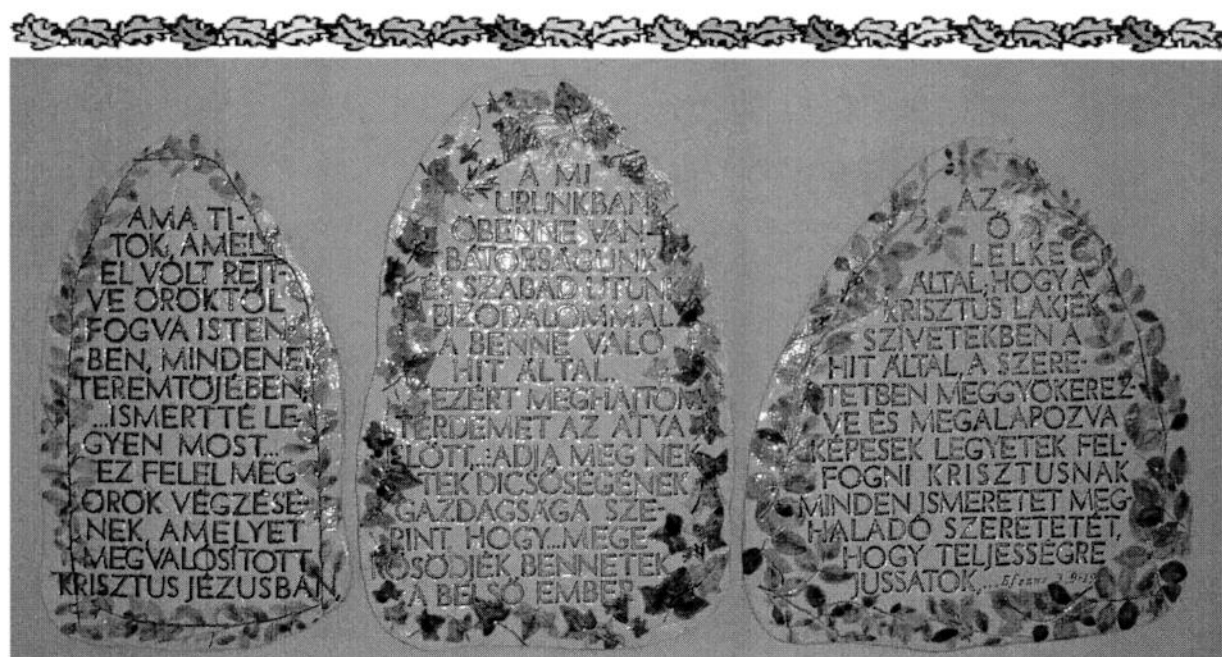 AMA TI-
TOK, AMELY
EL VOLT REJT-
VE ÖRÖKTŐL
FOGVA ISTEN-
BEN, MINDENEK
TEREMTŐJÉBEN,
...ISMERTTÉ LE-
GYEN MOST...
EZ FELEL MEG
ÖRÖK VÉGZÉSÉ-
NEK, AMELYET
MEGVALÓSÍTOTT
KRISZTUS JÉZUSBAN,
A MI
URUNKBAN.
ŐBENNE VAN
BÁTORSÁGUNK
ÉS SZABAD UTUNK
BIZODALOMMAL
A BENNE VALÓ
HIT ÁLTAL.
EZÉRT MEGHAJTOM
TÉRDEMET AZ ATYA
ELŐTT,: ADJA MEG NEK-
TEK DICSŐSÉGÉNEK
GAZDAGSÁGA SZE-
RINT HOGY...MEGE-
RŐSÖDJÉK BENNETEK
A BELSŐ EMBER
AZ
Ő
LELKE
ÁLTAL; HOGY A
KRISZTUS LAKJÉK
SZÍVETEKBEN A
HIT ÁLTAL, A SZERE-
TETBEN MEGGYÖKEREZ-
VE ÉS MEGALAPOZVA
KÉPESEK LEGYETEK FEL-
FOGNI KRISZTUSNAK
MINDEN ISMERETET MEG-
HALADÓ SZERETETÉT,
HOGY TELJESSÉGRE
JUSSATOK,...Efezus 3.9-19